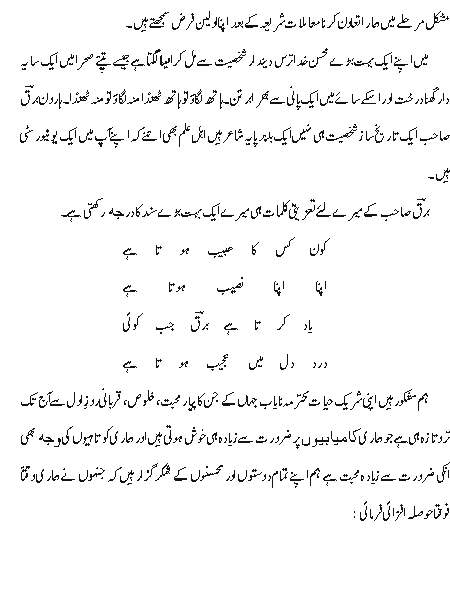 مشکل مرحلے میں ہمارا تعاون کرنا معاملات شریعہ کے بعد اپنا اولین فرض سمجھتے ہیں۔
میں اپنے ایک بہت بڑے محسن خدا ترس دیندار شخصیت سے مل کر ایسا لگتا ہے جیسے تپتے صحرا میں ایک سایہ
دار گھنا درخت اور اسکے سائے میں ایک پانی سے بھرا برتن۔ ہاتھ لگاؤ تو ہاتھ ٹھنڈا منہ لگاؤ تو منہ ٹھنڈا۔ ہارون برقؔ
صاحب ایک تاریخ ساز شخصیت ہی نہیں ایک بلند پایہ شاعر ہیں اہل علم بھی اتنے کہ اپنے آپ میں ایک یونیورسٹی
ہیں۔
برقؔ صاحب کے میرے لئے تعزیتی کلمات ہی میرے ایک بہت بڑے سند کا درجہ رکھتی ہے۔
کون کس کا حبیب ہو تا ہے
اپنا اپنا نصیب ہوتا ہے
یاد کر تا ہے برقؔ جب کوئی
درد دل میں عجیب ہو تا ہے
ہم مشکور ہیں اپنی شریک حیات محترمہ نایاب جہاں کے جن کا پیار محبت، خلوص، قربانی روزِ اول سے آج تک
تر و تازہ ہی ہے جو ہماری کامیابیوں پر ضرورت سے زیادہ ہی خوش ہوتی ہیں اور ہماری کوتاہیوں کی وجہ بھی
انکی ضرورت سے زیادہ محبت ہے ہم اپنے تمام دوستوں اور محسنوں کے شکر گزار ہیں کہ جنہوں نے ہماری وقتاً
فوقتاً حوصلہ افزائی فرمائی :